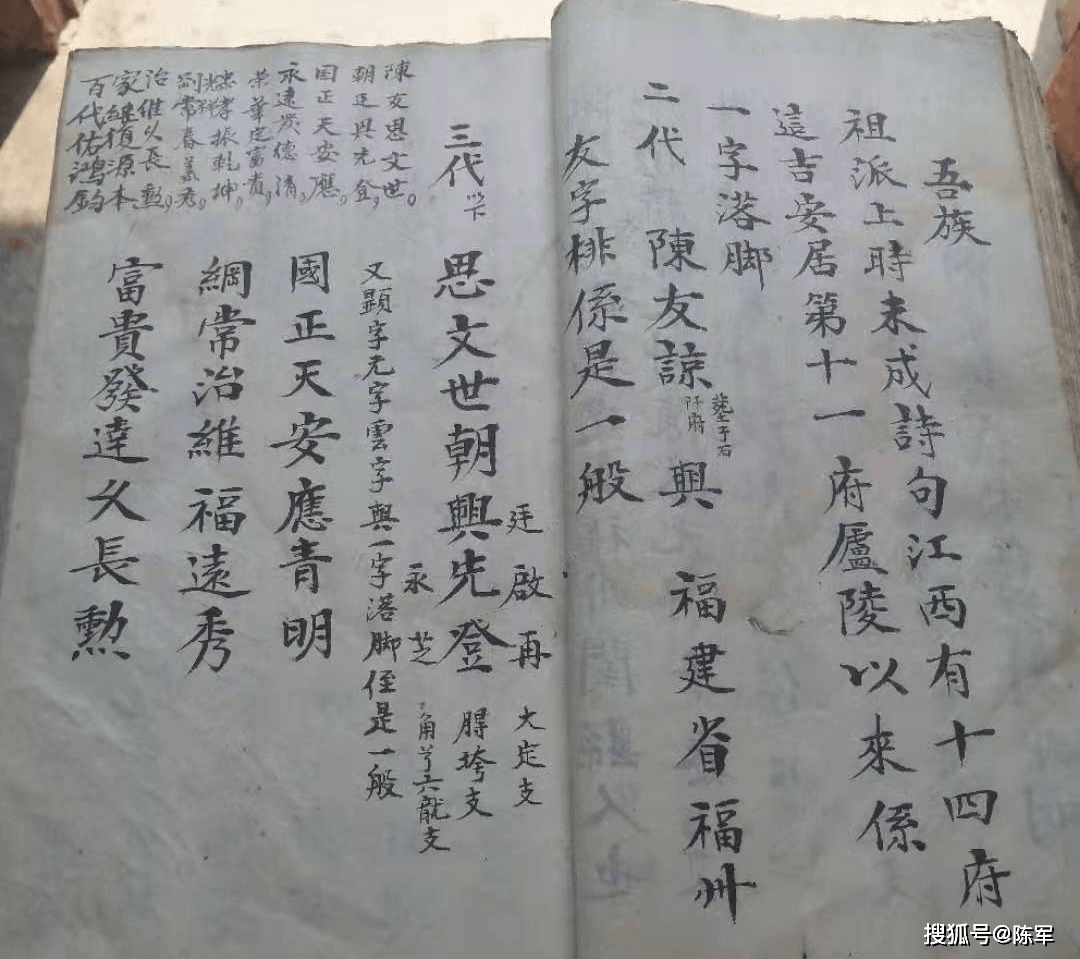 吾族
祖派上時未成詩句江西有十四府
這吉安居第十一府廬陵以來係
一字落脚
二代 陳友諒 興 福建省福州
塟于石
阡府
友字排係是一般
三代以下 思文世朝興先登
廷啟再 大定支
脖垮支
永芝 六龍支
又顯字光字雲字與一字落脚侄是一般
國正天安應青明
綱常治維福遠秀
富貴發達久長勲
陳友思文世。
朝正興先登。
国正天安應。
永遠發德清。
荣華定富貴。
忠孝振乾坤。
常春美秀。
治維以長勲。
家継植源本。
百代佑鴻鈞
搜狐号@陈军